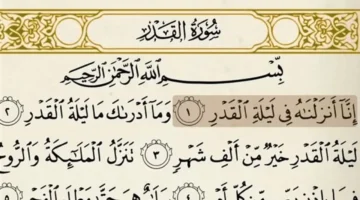 سُورَةُ الْقَدْرِ
بِسْمِ اللَّهِ الرَّحْمَٰنِ الرَّحِيمِ
إِنَّا أَنزَلْنَٰهُ فِى لَيْلَةِ الْقَدْرِ ١ وَمَا أَدْرَىٰكَ مَا لَيْلَةُ الْقَدْرِ ٢
لَيْلَةُ الْقَدْرِ خَيْرٌ مِّنْ أَلْفِ شَهْرٍ ٣ تَنَزَّلُ الْمَلَٰٓئِكَةُ وَالرُّوحُ